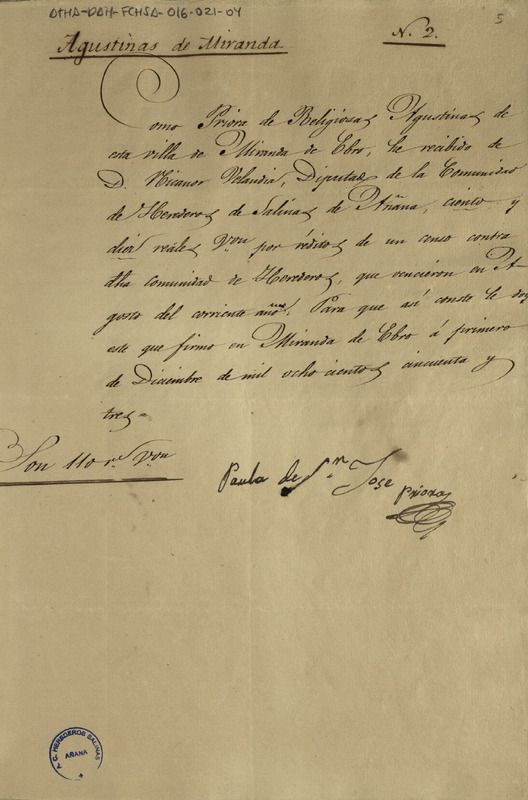 ATHA-DAH-FCHSA-016-021-04
5
Agustinas de Miranda.
N. 2.
Como Priora de Religiosas Agustinas de
esta villa de Miranda de Ebro, he recibido de
D. Nicanor Velandia, Diputado de la Comunidad
de Herederos de Salinas de Añana, ciento y
diez reales Von por réditos de un censo contra
dha comunidad de Herederos, que vencieron en A
gosto del corriente año. Para que así conste le doy
este que firmo en Miranda de Ebro á primero
de Diciembre de mil ocho cientos cincuenta y
tres=
Son 110 rs. Von
Paula de Sn. Jose
Priora
C. HEREDEROS SALINAS
AÑANA